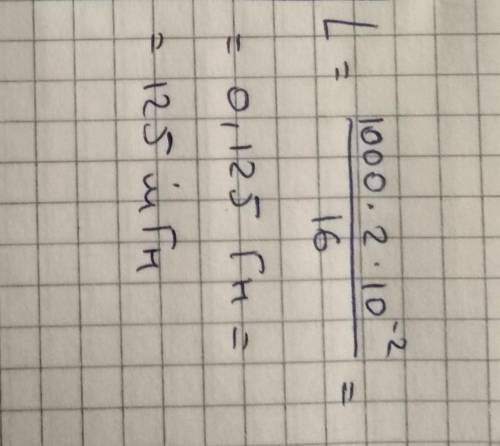 L = 1000 · 2 · 10⁻² / 16 =
= 0,125 Гн =
= 125 мГн